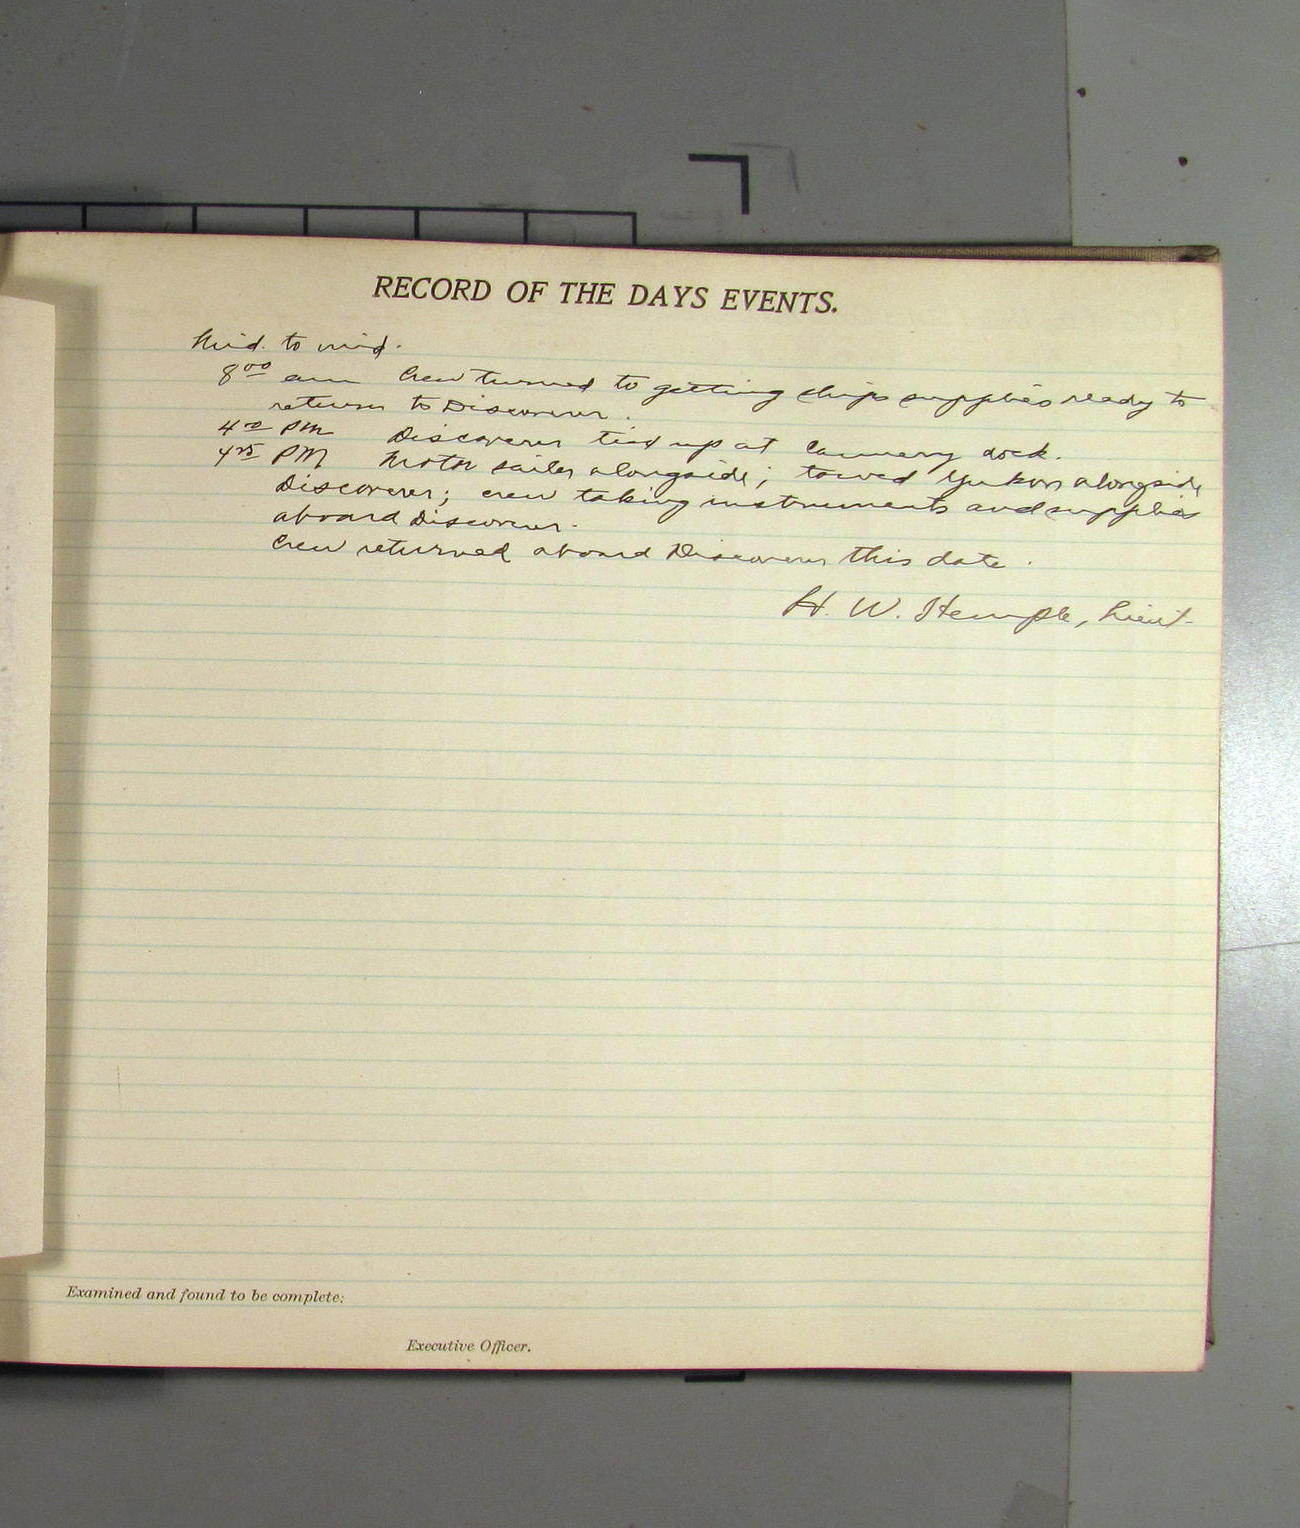 RECORD OF THE DAYS EVENTS.
Mid. to mid.
8⁰⁰ am Crew turned to getting ships supplies ready to
return to Discoverer.
4⁰⁰ PM Discoverer tied up at Cannery dock.
PM Motor sailer alongside; towed Yukon alongside
Discoverer; crew taking instruments and supplies
aboard Discoverer.
Crew returned aboard Discoverer this date.
H. W. Hemple, Lieut.
Examined and found to be complete:
Executive Officer.